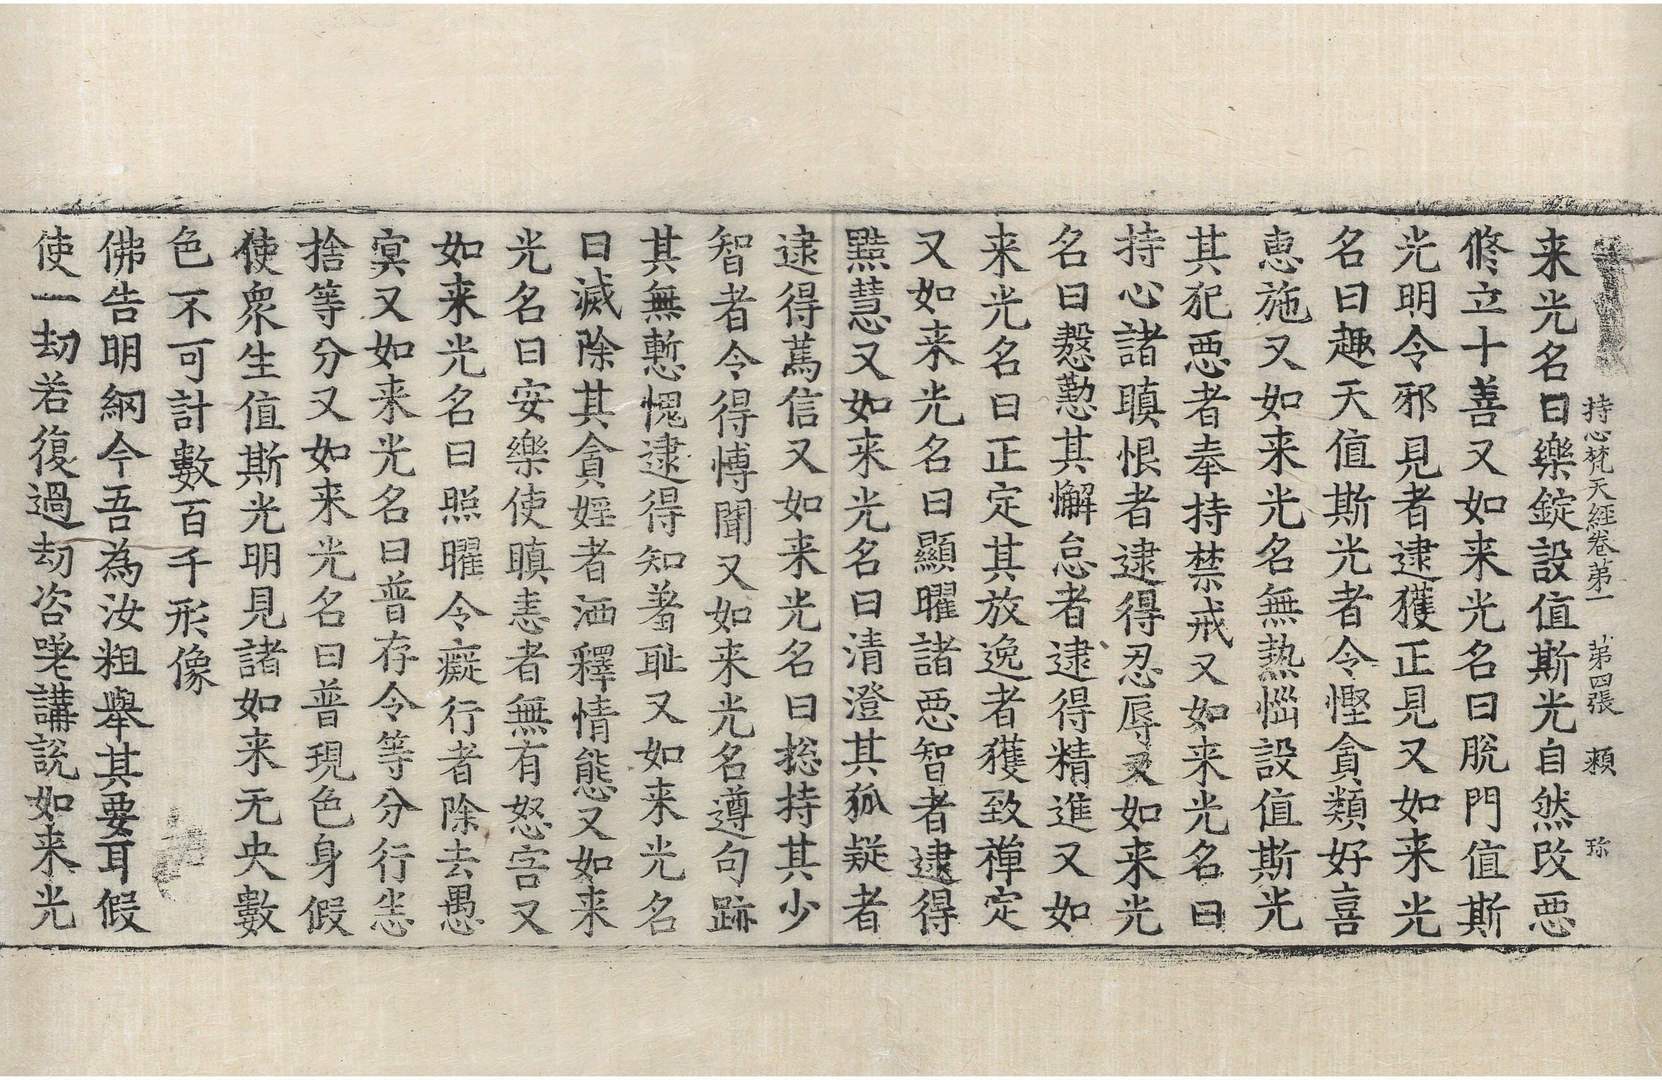 持心梵天經卷第一　第四張　頼　珎
来光名曰樂錠設值斯光自然改惡
脩立十善又如来光名曰脫門值斯
光明令邪見者逮獲正見又如来光
名曰趣天值斯光者令慳貪類好喜
恵施又如来光名無熱惱設值斯光
其犯惡者奉持禁戒又如来光名曰
持心諸瞋恨者逮得忍辱又如来光
名曰慇懃其懈怠者逮得精進又如
来光名曰正定其放逸者獲致禪定
又如来光名曰顯曜諸惡智者逮得
黠慧又如来光名曰清澄其狐疑者
逮得篤信又如来光名曰捴持其少
智者令得博聞又如来光名遵句跡
其無慙愧逮得知著耻又如来光名
曰滅除其貪婬者洒釋情態又如来
光名曰安樂使瞋恚者無有怒害又
如来光名曰照曜令癡行者除去愚
冥又如来光名曰普存令等分行恣
捨等分又如来光名曰普現色身假
使衆生值斯光明見諸如来无央數
色不可計數百千形像
佛告明綱今吾為汝粗舉其要耳假
使一劫若復過劫咨嗟講説如来光